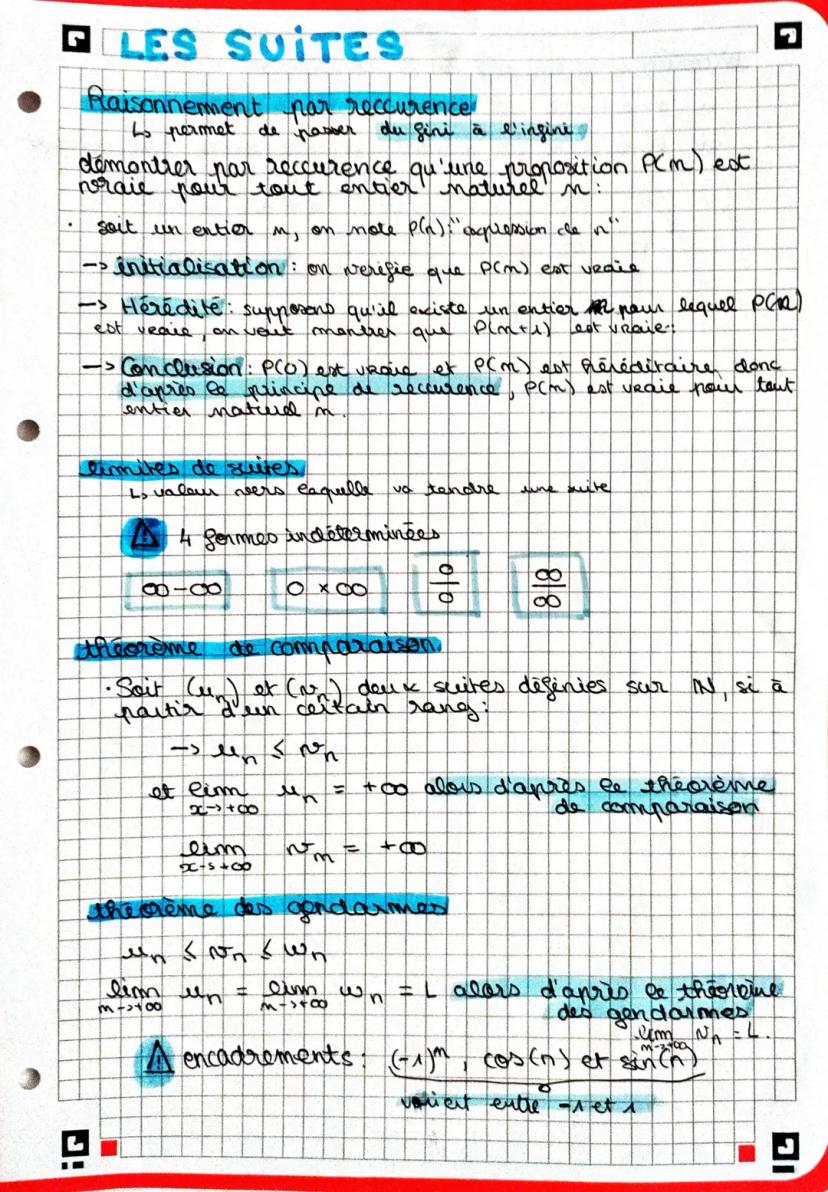 LES SUITES
Raisonnement par reccurence
↳ permet de passer du fini à l'infini
démontrer par reccurence qu'une proposition P(n) est
vraie pour tout entier naturel n :
· soit un entier n, on note P(n): "expression de n"
-> initialisation : on verifie que P(n) est vraie
-> Hérédité : supposons qu'il existe un entier n pour lequel P(n)
est vraie, on veut montrer que P(n+1) est vraie :
-> Conclusion : P(0) est vraie et P(n) est héréditaire, donc
d'après le principe de reccurence, P(n) est vraie pour tout
entier naturel n.
limites de suites
↳ valeur vers laquelle va tendre une suite
⚠ 4 formes indéterminées
∞-∞ 0 × ∞ 0/0 ∞/∞
théorème de comparaison
· Soit (un) et (vn) deux suites définies sur ℕ, si à
partir d'un certain rang :
-> un ≤ vn
et lim un = +∞ alors d'après le théorème
x->+∞ de comparaison
lim vn = +∞
x->+∞
théorème des gendarmes
un ≤ vn ≤ wn
lim un = lim wn = L alors d'après le théorème
n->+∞ n->+∞ des gendarmes
lim vn = L.
n->+∞
⚠ encadrements : (-1)^n, cos(n) et sin(n)
varient entre -1 et 1